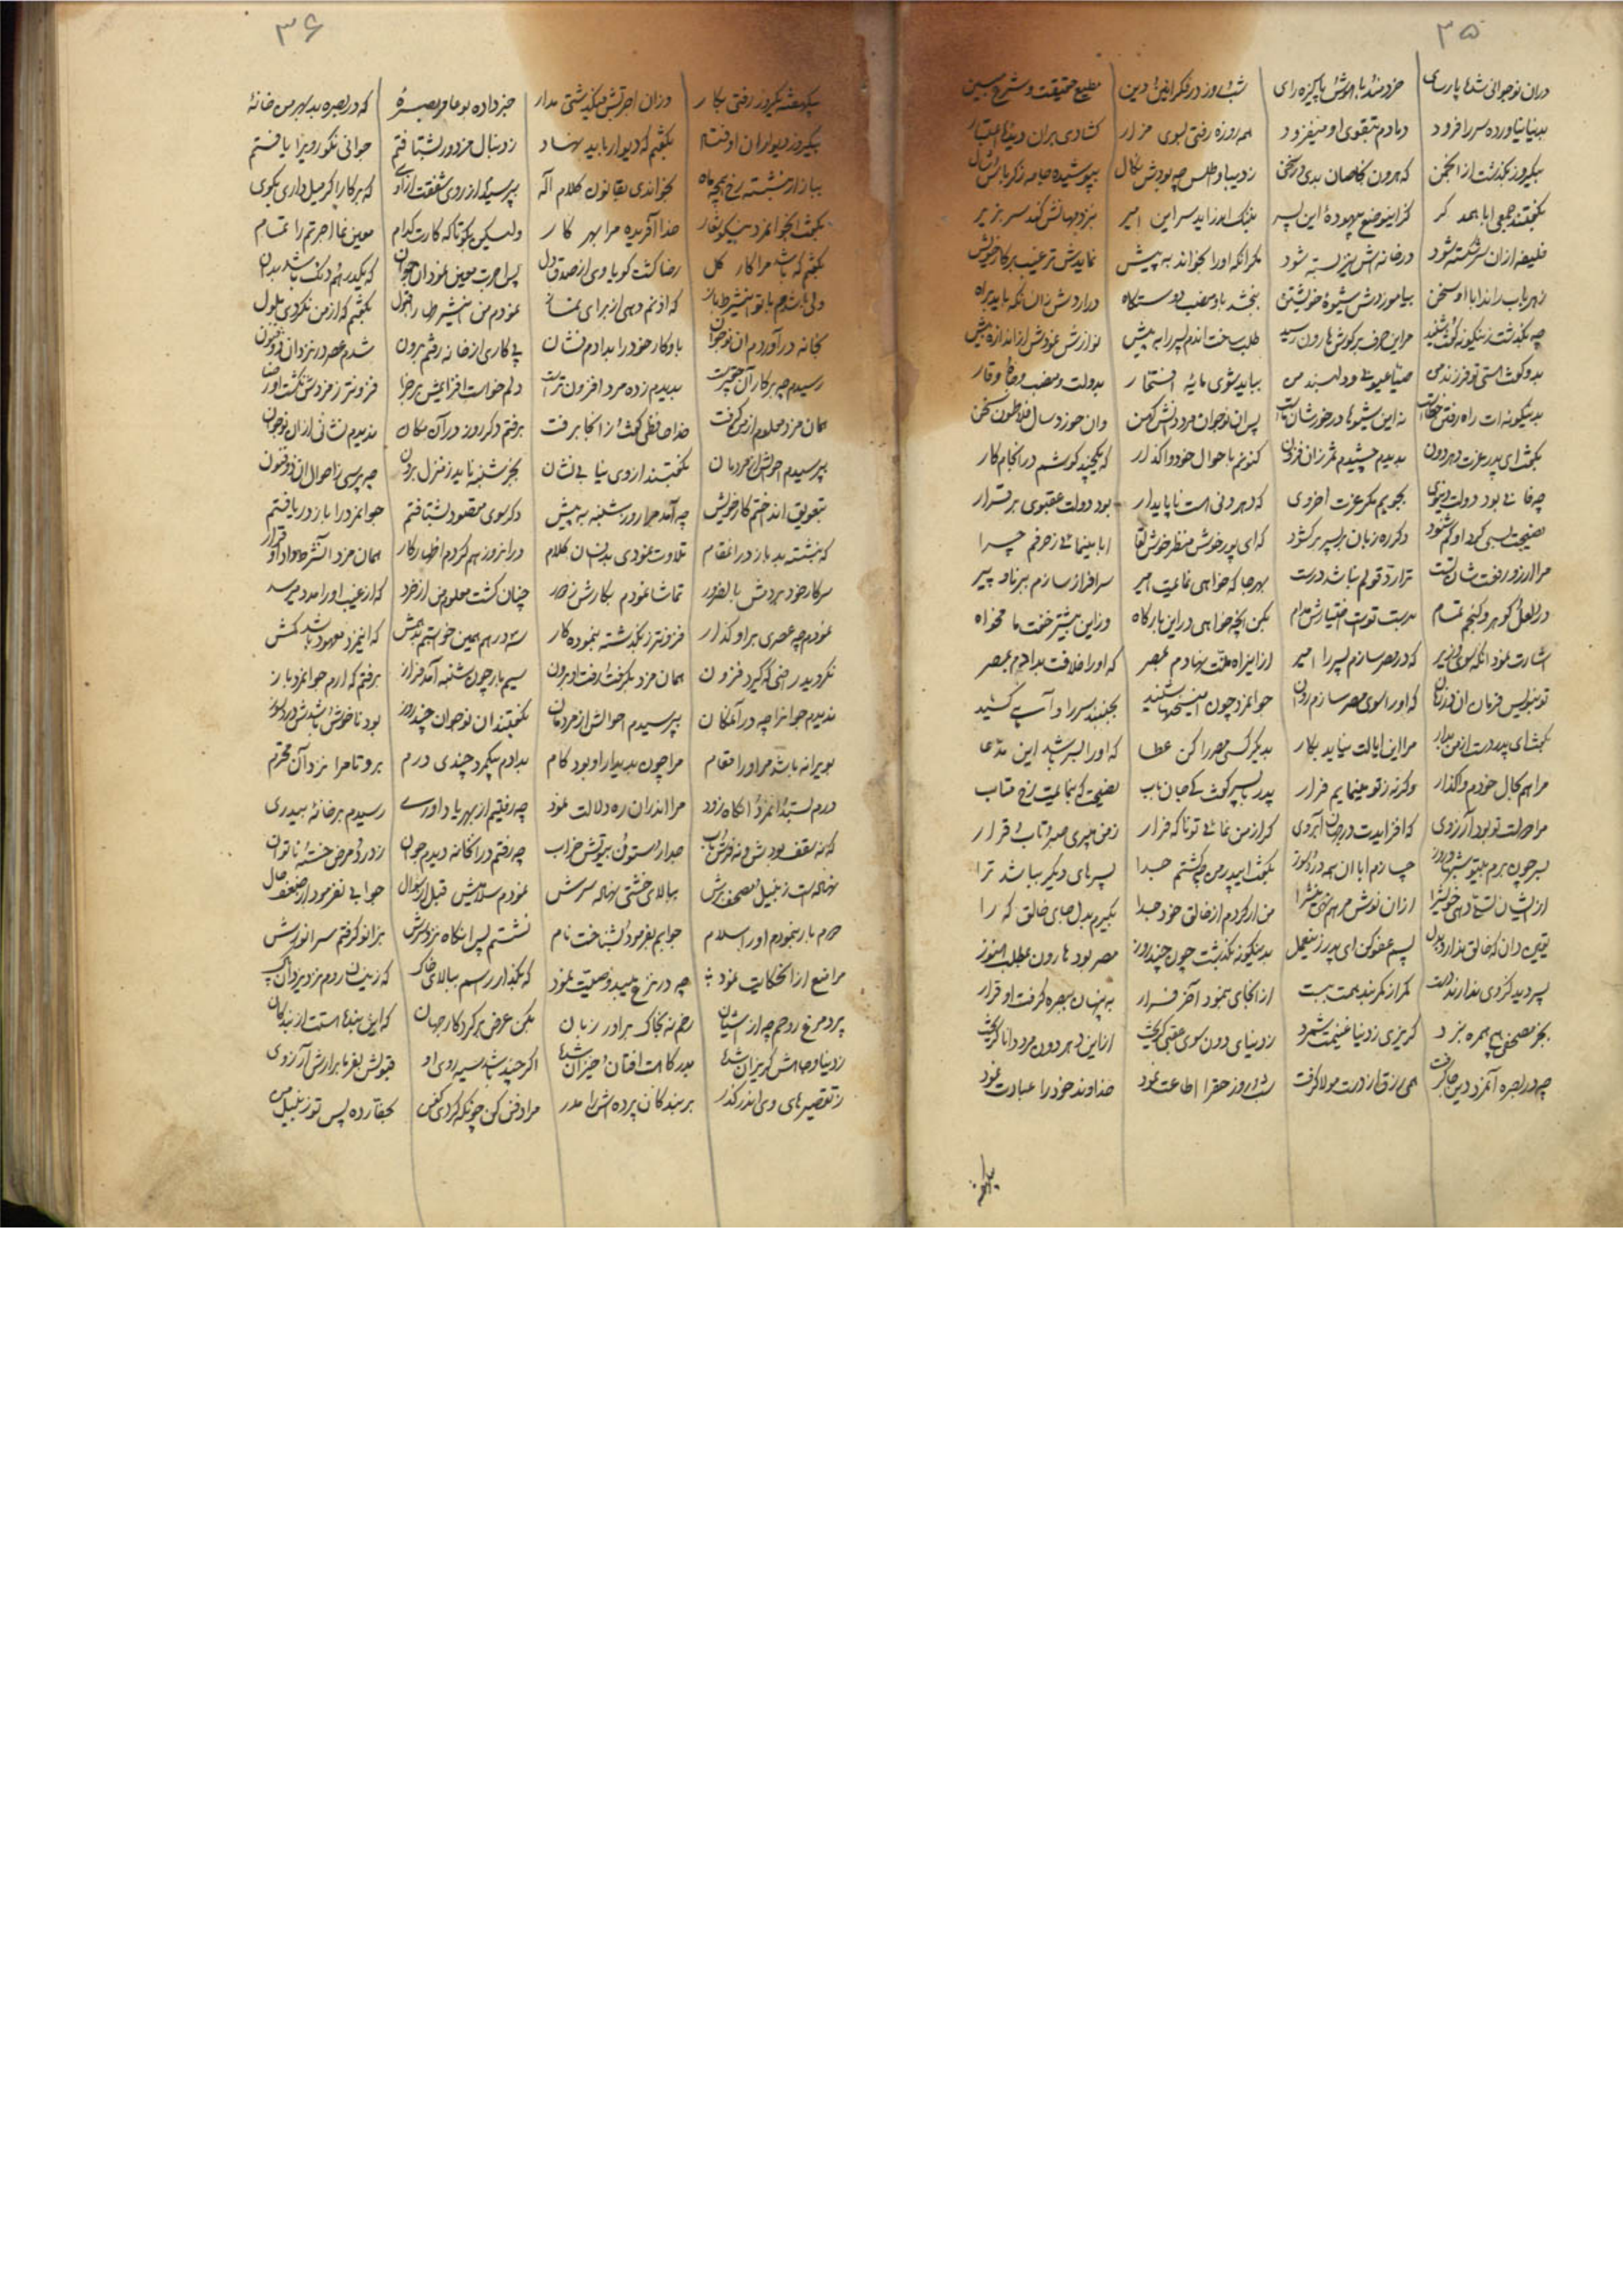 ۳۵
دران نوجوانی شده پارسای خردمند باهوش پاکیزه رای شب و روز در فکر آیین دین مطیع حقیقت و شرع مبین
بدنیا نیاورده سر را فرود دمادم بتقوی او میفزود همه روزه رفتی بسوی مزار کشادی بران دیده اعتبار
بیکروز بگذشت از انجمن که هرون بخاصان بدی در سخن ز دیبا و اطلس چه بودش نکال بپوشیده جامه ز کرباس و شال
بگفتند جمعی ابا همدگر کز اینوضع بیهوده این پسر بننگ اورد اید سر این امیر بنزد مهانش کند سر بزیر
خلیفه ازان سرشکسته شود در خانه اش نیز بسته شود مگر انکه او را بخواند به پیش نمایدش ترغیب بر کار خویش
ز هر باب راند ابا او سخن بیاموزدش شیوه خویشتن ببخشد باو منصب و دستگاه در اردش زان ره که باید براه
چه بگذشت زینگونه گفت و شنید مر این حرف بر گوش هارون رسید طلب ساخت اندم پسر را به پیش نوازش نمودش از اندازه بیش
بدو گفت استی تو فرزند من ضیا عیون و دلبند من بباید شوی مایه افتخار بدولت و منصب و جاه و وقار
بدینگونه ات راه رفتن خطاست نه این شیوها در خور شان ماست پس ان نوجوان مرد دانش کهن وان خورد سال فلاطون سخن
بگفت ای پدر عزت دهر دون بدیدم چشیدم ثمر زان فزون کنونم باحوال خود واگذار که یکچند کوشم در انجام کار
چه فانی بود دولت دنیوی بجویم مگر عزت اخروی که دهر دنی است ناپایدار بود دولت عقبوی برقرار
نصیحت بسی کرد او کم شنود دگر ره زبان بر پسر بر گشود که ای پور خوش منظر خوش لقا ابا مینمائی ز حرفم چرا
مرا ارزو رفعت شان تست ترا رد قولم نباشد درست بهر جا که خواهی نمایمت امیر سرافراز سازم ببرنا و پیر
در لعل و گوهر و گنجم تمام بدست توست اختیارش مدام بکن آنچه خواهی در این بارگاه وز این بیشتر خفت ما مخواه
اشارت نمود انگه سوی وزیر که در مصر سازم پسر را امیر از اینراه منت نهادم بمصر که او را خلافت بدادم بمصر
تو بنویس فرمان ان در زمان که او را سوی مصر سازم روان جوانمرد چون این سخنها شنید بجنبید سر را و آهی کشید
بگفت ای پدر دست از من بدار مرا این ایالت نیاید بکار بدیگر کسی مصر را کن عطا که او را بسر باشد این مدعا
مرا هم بحال خودم واگذار وگرنه ز تو مینمایم فرار پدر با پسر گفت کی جان باب نصیحت که بنمایمت رخ متاب
مرا دولت تو بود آرزوی که افزایدت در جهان آبروی گر از من نمائی تو ناگه فرار ز من میبری صبر و تاب و قرار
بسر چون برم بیتو شبها و روز چسازم ابا ان همه درد و سوز بگفت ای پدر من چو گشتم جدا پسرهای دیگر بباشد ترا
از ایشان تسلی دهی خویش را ازان نوش مرهم نهی نیش را من ار گردم از خالق خود جدا بگیرم بدل جای خالق که را
یقین دان که خالق ندارد بدل پسم عفو کن ای پدر زینعمل بدینگونه بگذشت چون چند روز مصر بود هارون بمطلب هنوز
پسر دید کز وی ندارند دست کمر از مگر بند همت ببست از انجای بنمود آخر فرار به پنهان ببصره گرفت او قرار
بجز مصحفی هیچ همره نبرد گریزی ز دنیا غنیمت شمرد ز دنیای دون سوی عقبی گریخت از این دهر دون مرد دانا گریخت
چه در بصره آنمرد دین جا گرفت همی رزق از دست مولا گرفت شب و روز حق را اطاعت نمود خداوند خود را عبادت نمود
۳۶
بیکهفته یکروز رفتی بکار وزان اجرتش میگذشتی مدار خبر داده بوعامر بصره که در بصره بد بهر من خانه
بیکروز دیوار ان اوفتاد بگفتم که دیوار باید نهاد ز دنبال مزدور بشتافتم جوانی نکو روی را یافتم
ببازار بنشسته رخ همچه ماه بخواندی بقانون کلام اله بپرسیدم از روی شفقت از او که بر کار اگر میل داری بگوی
بگفت انجوانمرد نیکو شعار خدا آفریده مرا بهر کار ولیکن بگو تا که کارت کدام معین نما اجرتم را تمام
بگفتم که باشد مرا کار گل رضا گشت گویا وی از صدق دل پس اجرت معین نمود ان جوان که یکدرهم و دانگ باشد بدان
ولی باشدم با تو این شرط باز که اذنم دهی از برای نماز نمودم من این شرط را قبول بگفتم که از من نگردی ملول
بخانه در آوردم ان نوجوان باو کار خود را بدادم نشان پی کاری از خانه رفتم برون شدم عصر در نزد ان ذوفنون
رسیدم چه بر کار آن حق پرست بدیدم ز ده مرد افزون تر است دلم خواست افزایش بر جزا فزونتر ز مزدش نگشت او رضا
همان مزد معلوم از من گرفت خداحافظی گفت و زانجا برفت برفتم دگر روز در آن مکان ندیدم نشانی ازان نوجوان
بپرسیدم احوالش از مردمان بگفتند از وی نیابی نشان بجز شنبه ناید ز منزل برون چه پرسی ز احوال ان ذوفنون
بتعویق انداختم کار خویش چه آمد مرا روز شنبه به پیش دگر سوی مقصود بشتافتم جوانمرد را باز دریافتم
که بنشسته بد باز در انمقام تلاوت نمودی بدنسان کلام در انروز هم کردم اظهار کار همان مزد و انشرط داد او قرار
سر کار خود بردمش بالضرور تماشا نمودم بکارش ز دور چنان گشت معلوم من از خرد که از غیب او را مدد میرسد
نمودم چه عصری بر او گذار فزونتر ز بگذشته بنموده کار سه درهم همین خواستم بدهمش که اینمزد معهود باشد کمش
نگردید راضی که گیرد فزون همان مزد بگرفت و رفت او برون سیم بار چون شنبه آمد فراز برفتم که ارم جوانمرد باز
ندیدم جوانرا چه در آنمکان بپرسیدم احوالش از مردمان بگفتند ان نوجوان چند روز بود ناخوش و باشدش درد و سوز
بویرانه باشد مر او را مقام مرا چون بدیدار او بود کام بدادم بیکمرد چندی درم برو تا مرا نزد آن محترم
درم بستد انمرد آگاه زود مرا اندران ره دلالت نمود چه رفتیم از بهر یاد اورے رسیدم بر خانه بیدری
که نه سقف بودش و نه فرش و باب جدار و ستون بیوتش خراب چه رفتم در انخانه دیدم جوان ز درد و مرض خسته و ناتوان
نهاده است زنبیل و مصحف برش ببالای خشتی نهاده سرش نمودم سلامیش قبل از سوال جوابی نفرمود از ضعف حال
دوم بار بنمودم او را سلام جوابم بفرمود و بشناخت نام نشستم پس انگاه نزد سرش بزانو گرفتم سر انورش
مرا منع از انحکایت نمود چه در نزع میبد وصیت نمود که بگذار راسم ببالای خاک که زینسان روم نزد یزدان پاک
پرد مرغ روحم چه از آشیان رخم نه بخاک برادر زبان بکن عرض بر کردگار جهان که این بنده است از بندگان
ز دنیا و جاهش گریزان شده بدرگاهت افتان و خیزان شده اگر چند باشد سیه روی او قبولش بفرما برارش آرزوی
ز تقصیرهای وی اندر گذر بر بندگان پرده اش را مدر مرا دفن کن چونکه کردی کفن بحفار ده پس تو زنبیل من